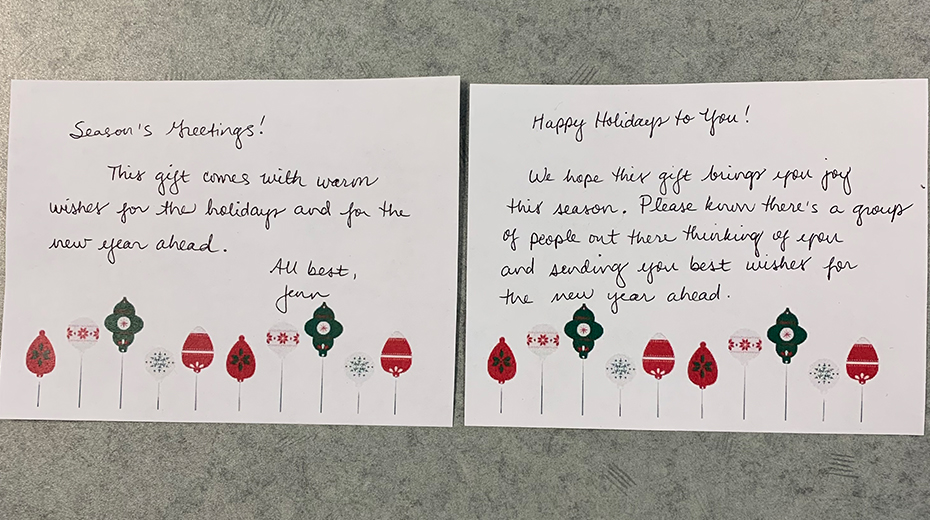 Season's Greetings!
This gift comes with warm
wishes for the holidays and for the
new year ahead.
All best,
Jenn
Happy Holidays to You!
We hope this gift brings you joy
this season. Please know there's a group
of people out there thinking of you
and sending you best wishes for
the new year ahead.